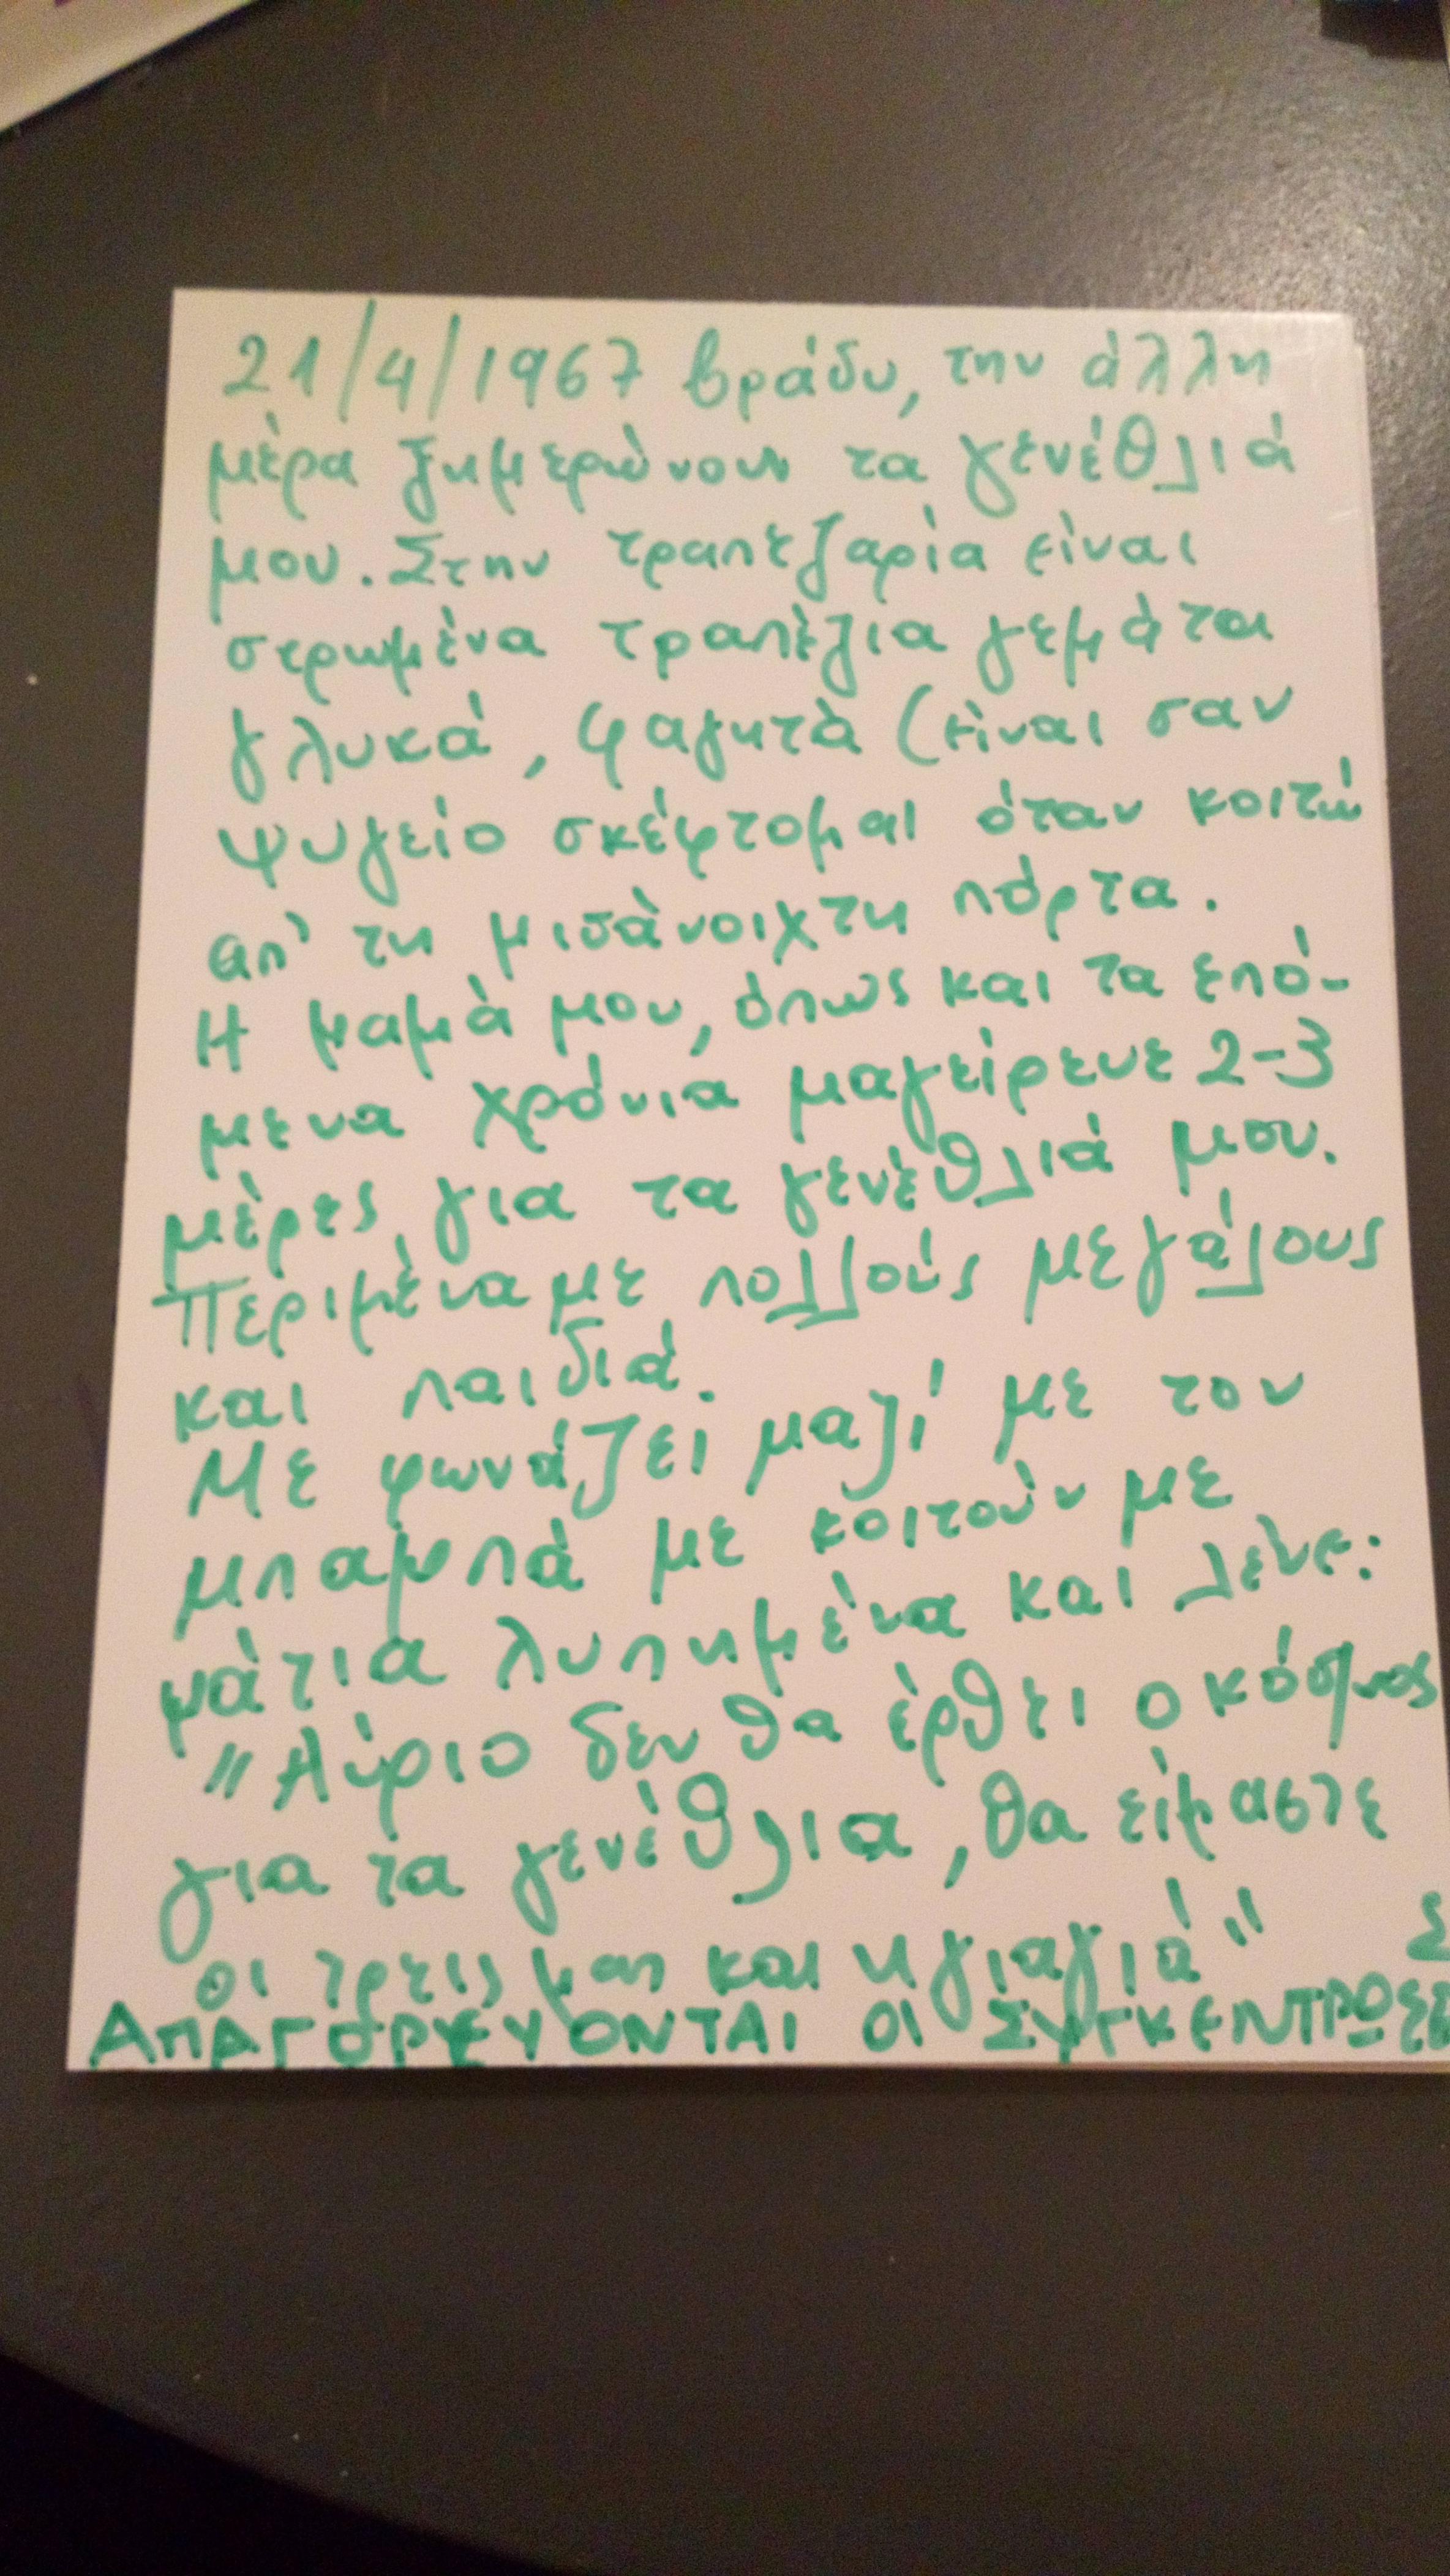 21/4/1967 βράδυ, την άλλη
μέρα ξημερώνουν τα γενέθλιά
μου. Στην τραπεζαρία είναι
στρωμένα τραπέζια γεμάτα
γλυκά, φαγητά (είναι σαν
ψυγείο σκέφτομαι όταν κοιτώ
απ' τη μισάνοιχτη πόρτα.
Η μαμά μου, όπως και τα επό-
μενα χρόνια μαγείρευε 2-3
μέρες για τα γενέθλιά μου.
Περιμέναμε πολλούς μεγάλους
και παιδιά.
Με φωνάζει μαζί με τον
μπαμπά με κοιτούν με
μάτια λυπημένα και λένε:
"Αύριο δεν θα έρθει ο κόσμος
για τα γενέθλια, θα είμαστε
οι τρεις μας και η γιαγιά"
ΑΠΑΓΟΡΕΥΟΝΤΑΙ ΟΙ ΣΥΓΚΕΝΤΡΩΣΕΙΣ